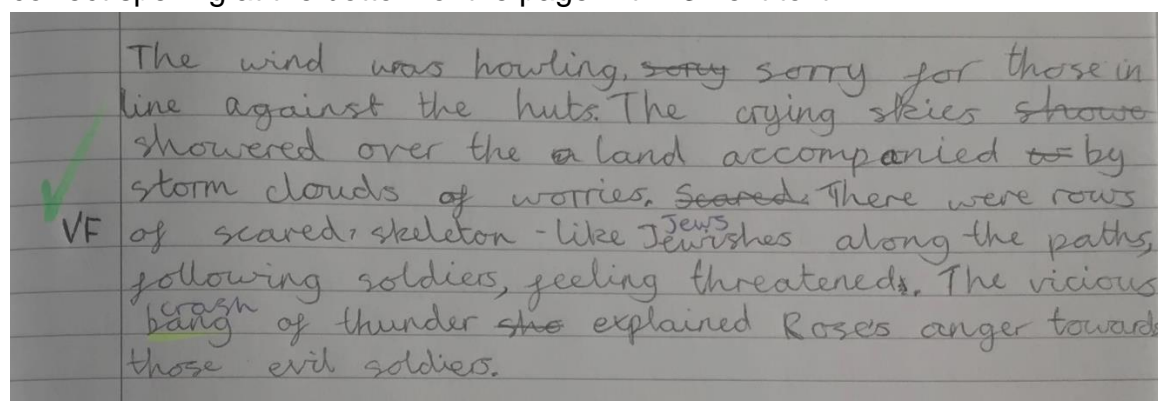 The wind was howling, sorry sorry for those in
line against the huts. The crying skies showe
showered over the a land accompanied to by
storm clouds of worries. Scared. There were rows
VF of scared, skeleton-like Jewishes Jews along the paths,
following soldiers, feeling threatened. The vicious
bang crash of thunder she explained Roses anger towards
those evil soldiers.